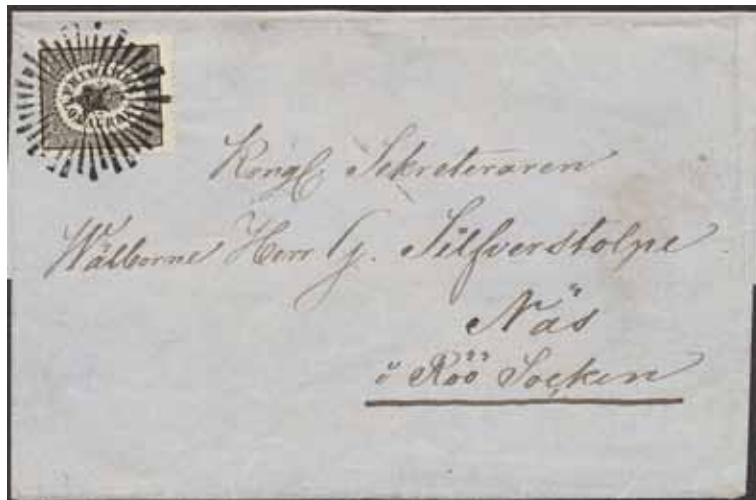 Kongl. Sekreteraren
Wälborne Herr G. Silfverstolpe
Näs
i Röö Socken